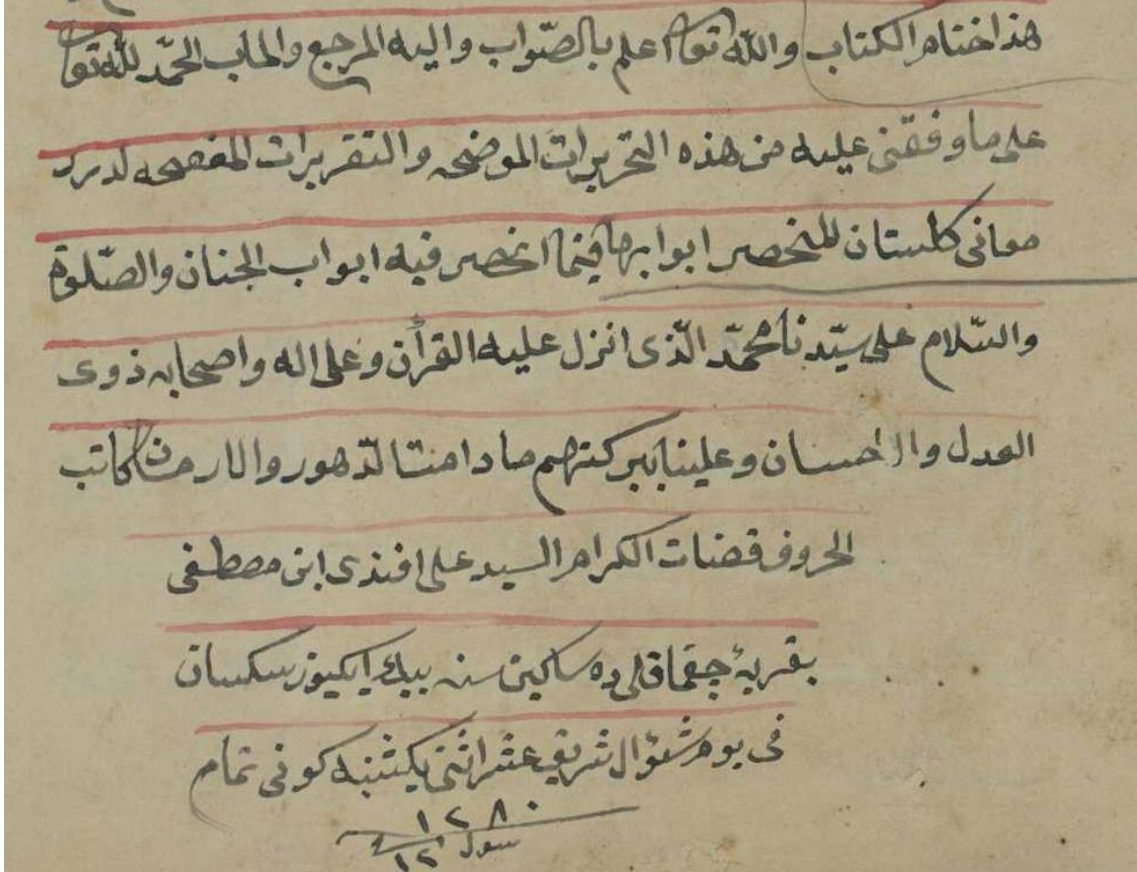 هذا ختام الكتاب والله تعا اعلم بالصّواب واليه المرجع والماب الحمد لله تعا
على ما وفقنى عليه من هذه التحريرات الموضحه والتقريرات المفصحه لدرر
معانى كلستان المنحصر ابوابها فيما انحصر فيه ابواب الجنان والصّلوة
والسّلام على سيّدنا محمّد الّذى انزل عليه القرأن وعلى اله واصحابه ذوى
العدل والاحسان وعلينا ببركتهم ما دامت الدّهور والازمان كاتب
الحروف قضات الكرام السيد على افندى ابن مصطفى
بقريهٔ چقماقلى ده ساكين سنه بيك ايكيوز سكسان
فى يوم شوّال شريف عشر اثنى يكشنبه كونى تمام
١٢٨٠
١٢